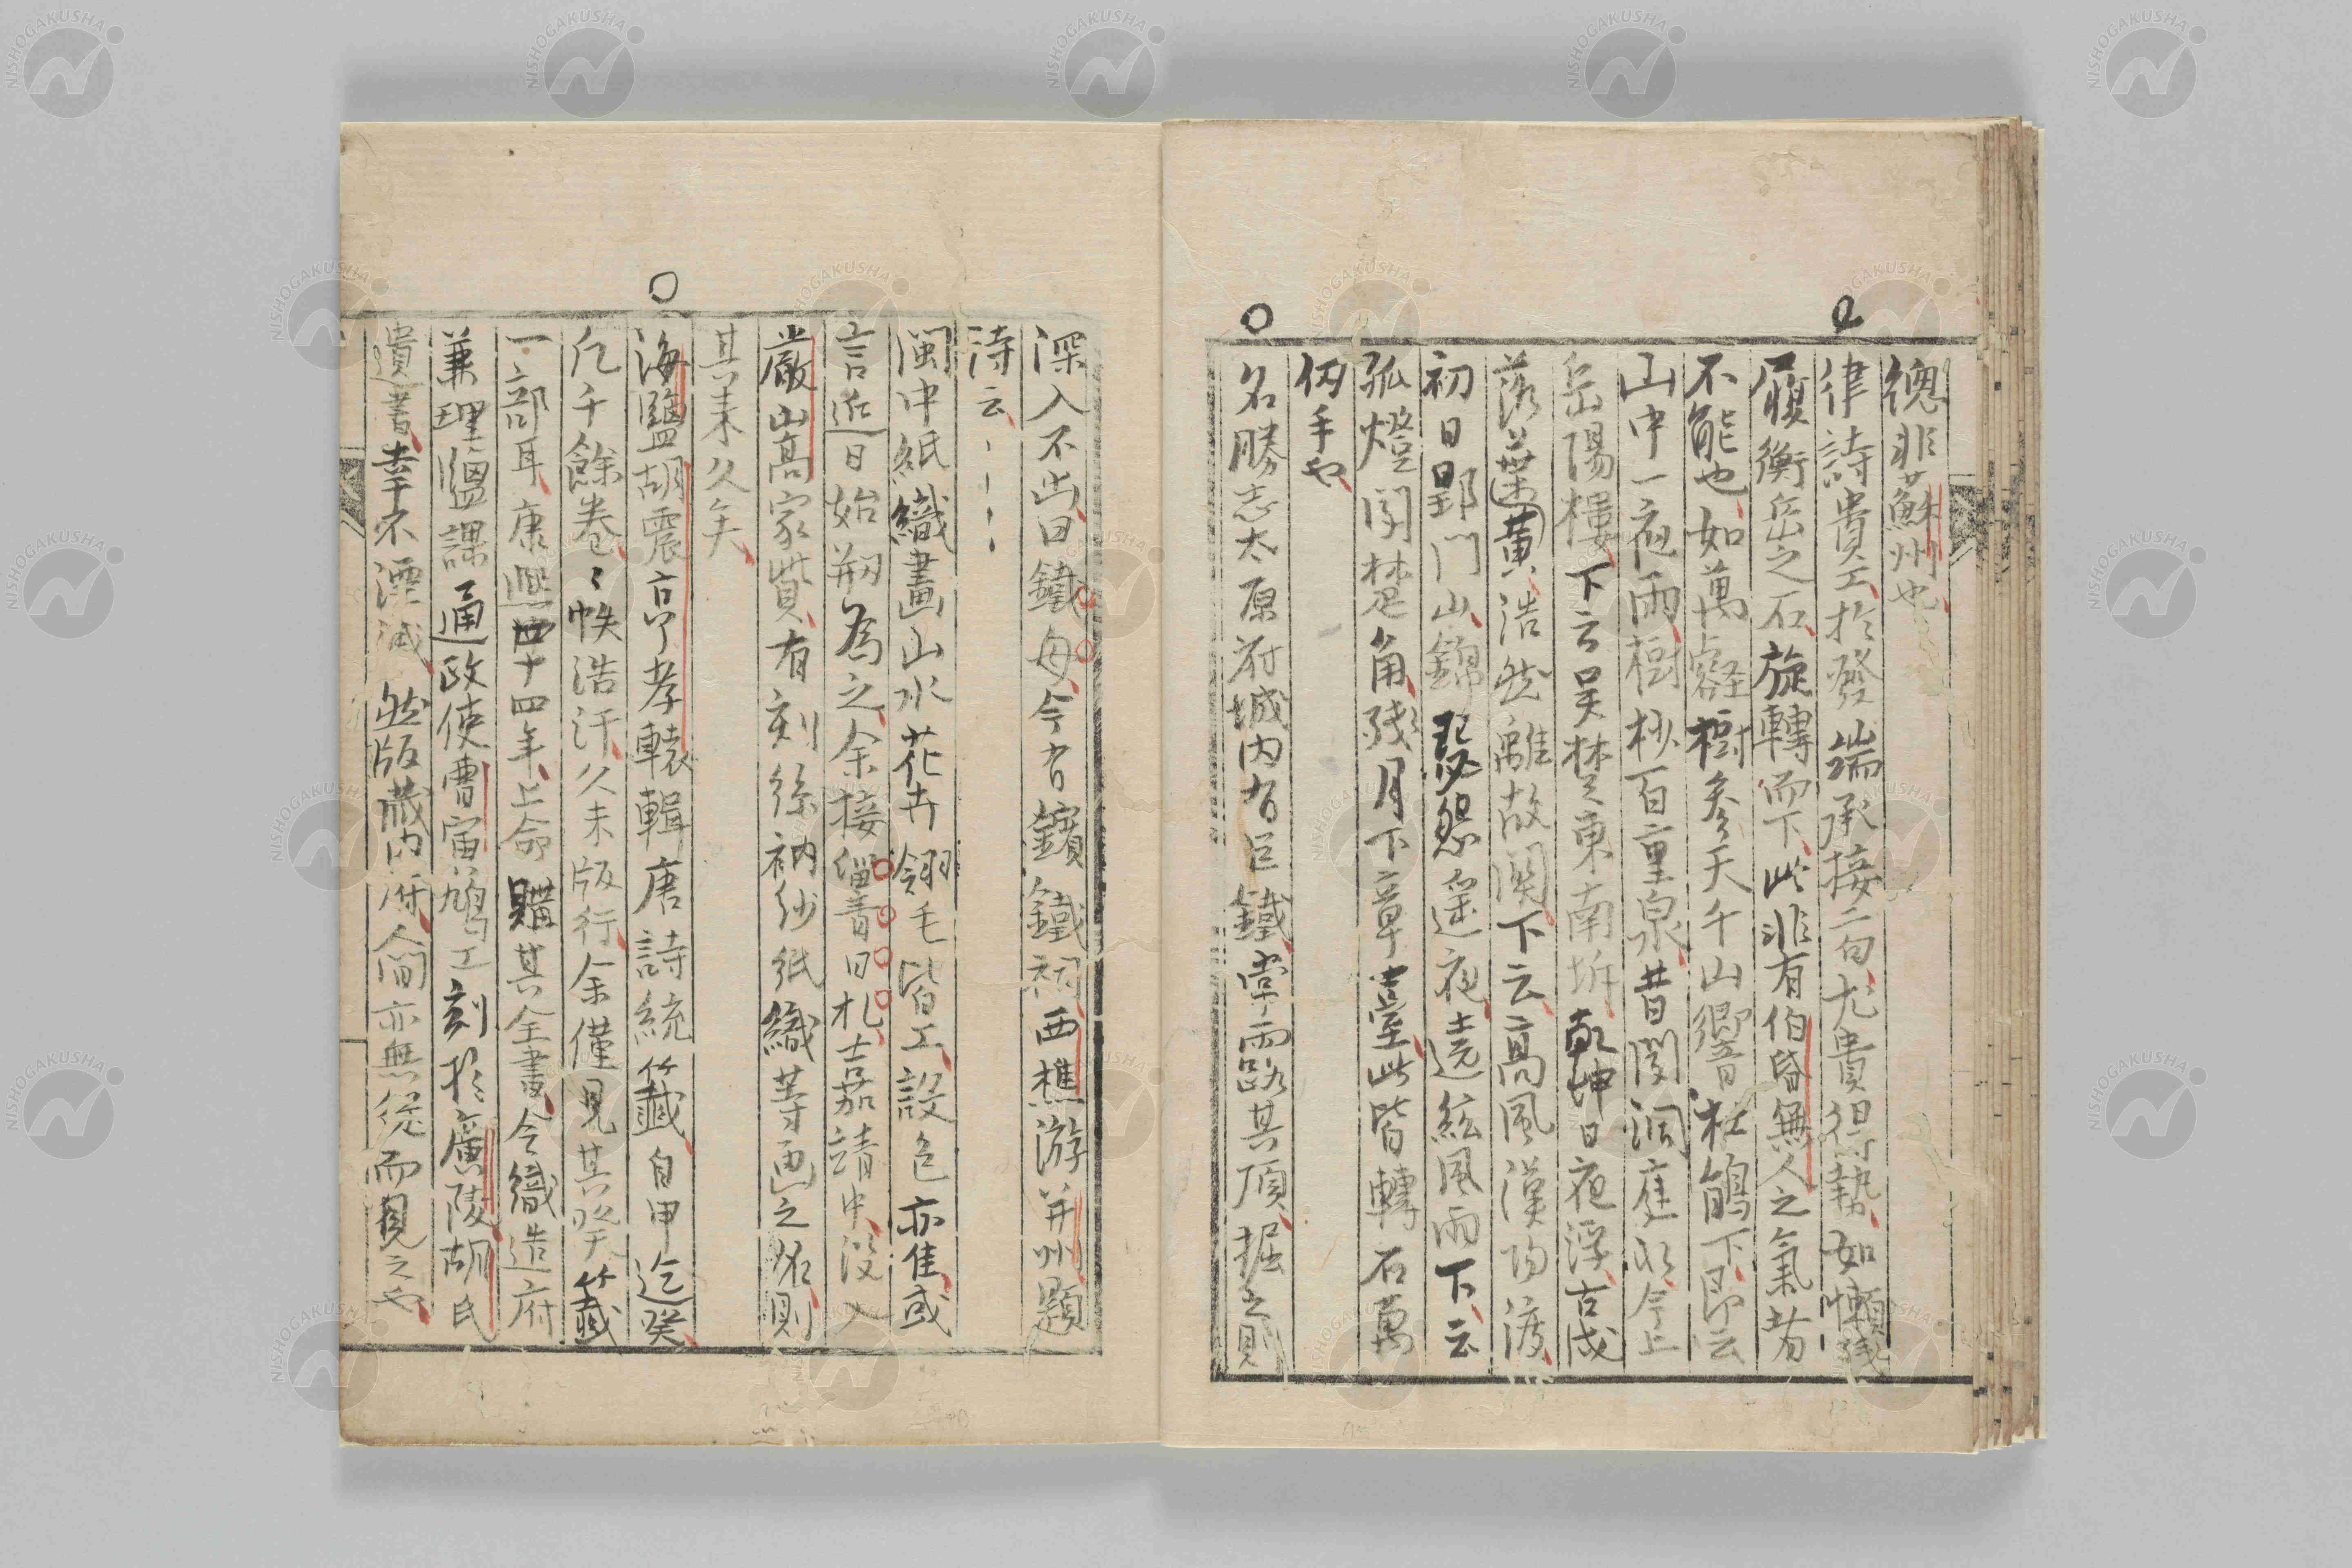 總非蘇州也
律詩貴工於發端承接二句尤貴得勢如懶殘
履衡岳之石旋轉而下此非有伯昏無人之氣者
不能也如萬壑樹參天千山響杜鵑下即云
山中一夜雨樹杪百重泉昔聞洞庭水今上
岳陽樓下云吳楚東南坼乾坤日夜浮古戍
落葉黃浩然離故關下云高風漢陽渡
初日郢門山錦瑟怨遥夜遶絃風雨下云
孤燈聞楚角殘月下章臺此皆轉石萬
仞手也
名勝志太原府城內有巨鐵常露其頂掘之則
深入不出曰鐵母今有鑌鐵祠西樵游并州題
詩云
閩中紙織畫山水花卉翎毛皆工設色亦佳或
言近日始剏為之余接緇青日札言嘉靖中沒入
嚴山高家貲有刻絲衲紗紙織等画之名則
其来久矣
海鹽胡震亨孝轅輯唐詩統籤自甲迄癸
凡千餘卷々帙浩汗久未版行余僅見其癸籤
一部耳康熙四十四年上命購其全書令織造府
兼理鹽課通政使曹寅鳩工刻於廣陵胡氏
遺書幸不湮滅然版藏內府人間亦無從而見之也
NISHOGAKUSHA